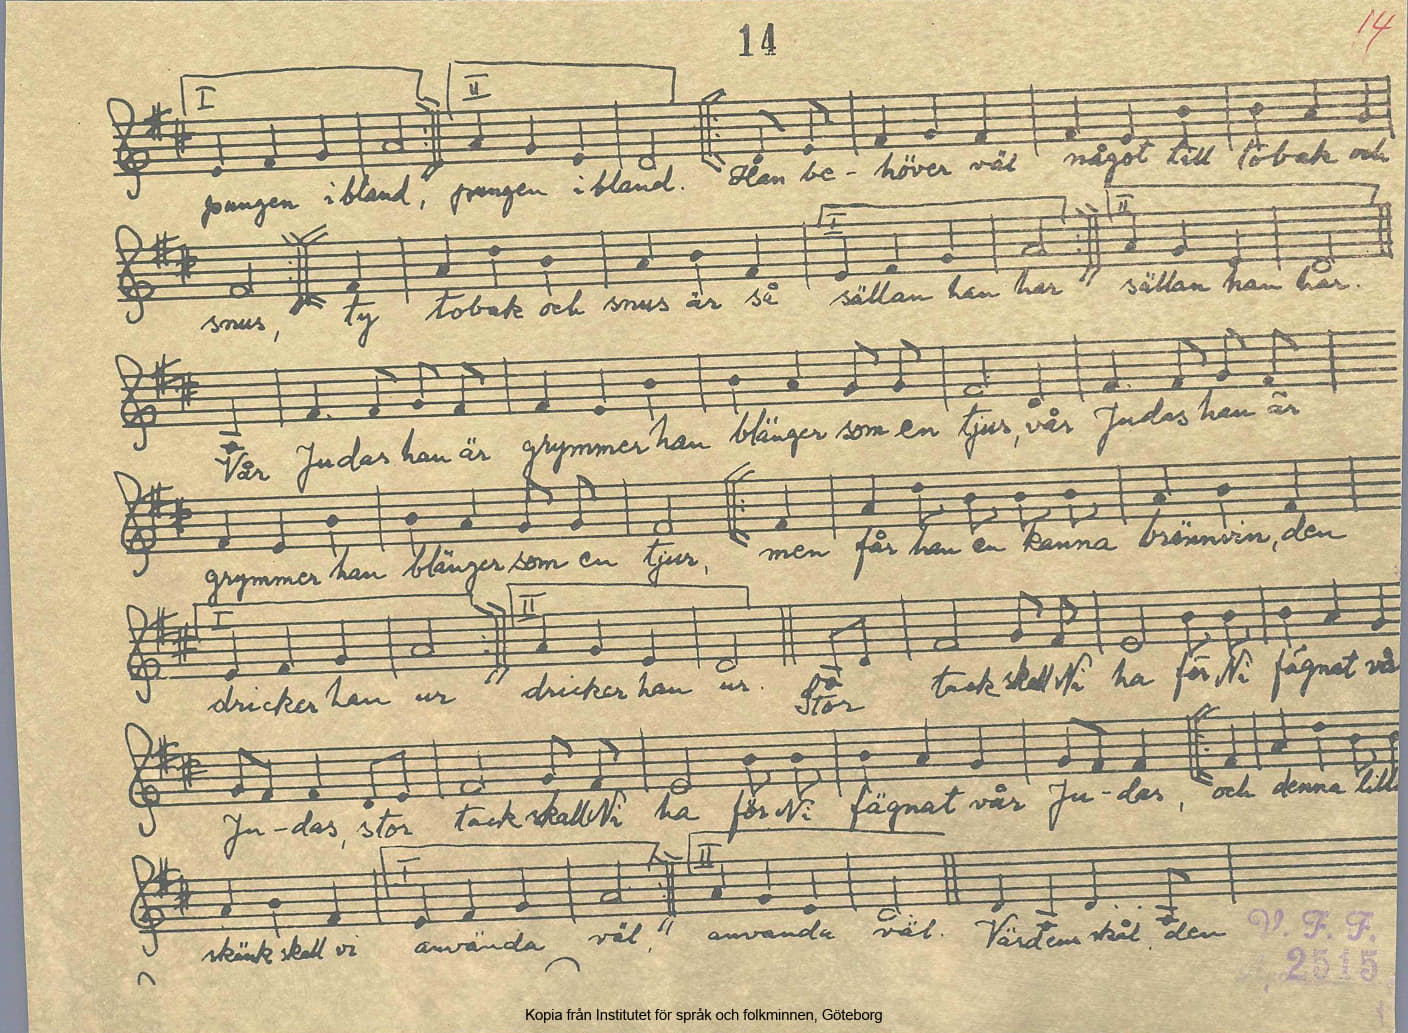 14
14
I II
pungen ibland, pungen ibland. Han be- höver väl något till tobak och
I II
snus, ty tobak och snus är så sällan han har sällan han har.
Vår Judas han är grymmer han blänger som en tjur, vår Judas han är
grymmer han blänger som en tjur, men får han en kanna brännvin, den
I II
dricker han ur dricker han ur. Stor tack skall Ni ha för Ni fägnat vår
Ju-das, stor tack skall Ni ha för Ni fägnat vår Ju-das, och denna lilla
I II
skänk skall vi använda väl, använda väl. Värdens skål den
V. F. F.
Kopia från Institutet för språk och folkminnen, Göteborg